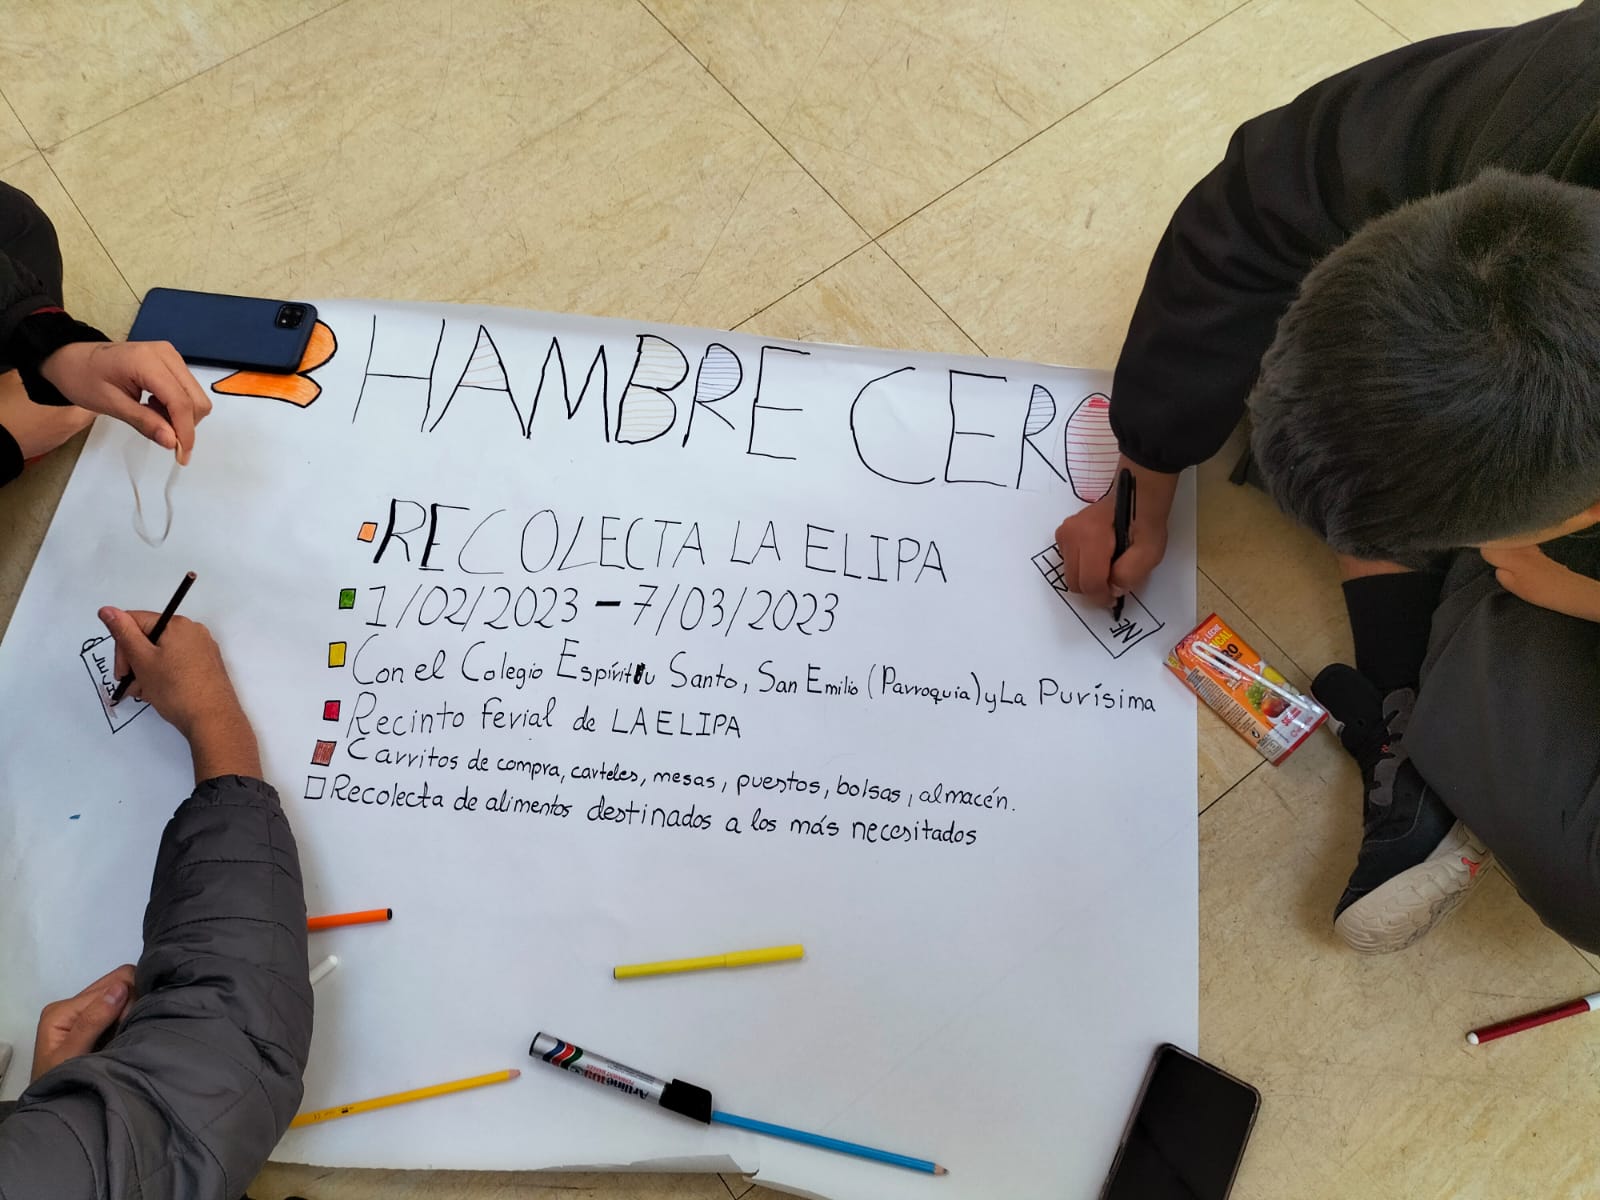 HAMBRE CERO
RECOLECTA LA ELIPA
1/02/2023 - 7/03/2023
Con el Colegio Espíritu Santo, San Emilio (Parroquia) y La Purísima
Recinto ferial de LA ELIPA
Carritos de compra, carteles, mesas, puestos, bolsas, almacén.
Recolecta de alimentos destinados a los más necesitados
NE
LECHE
Artline